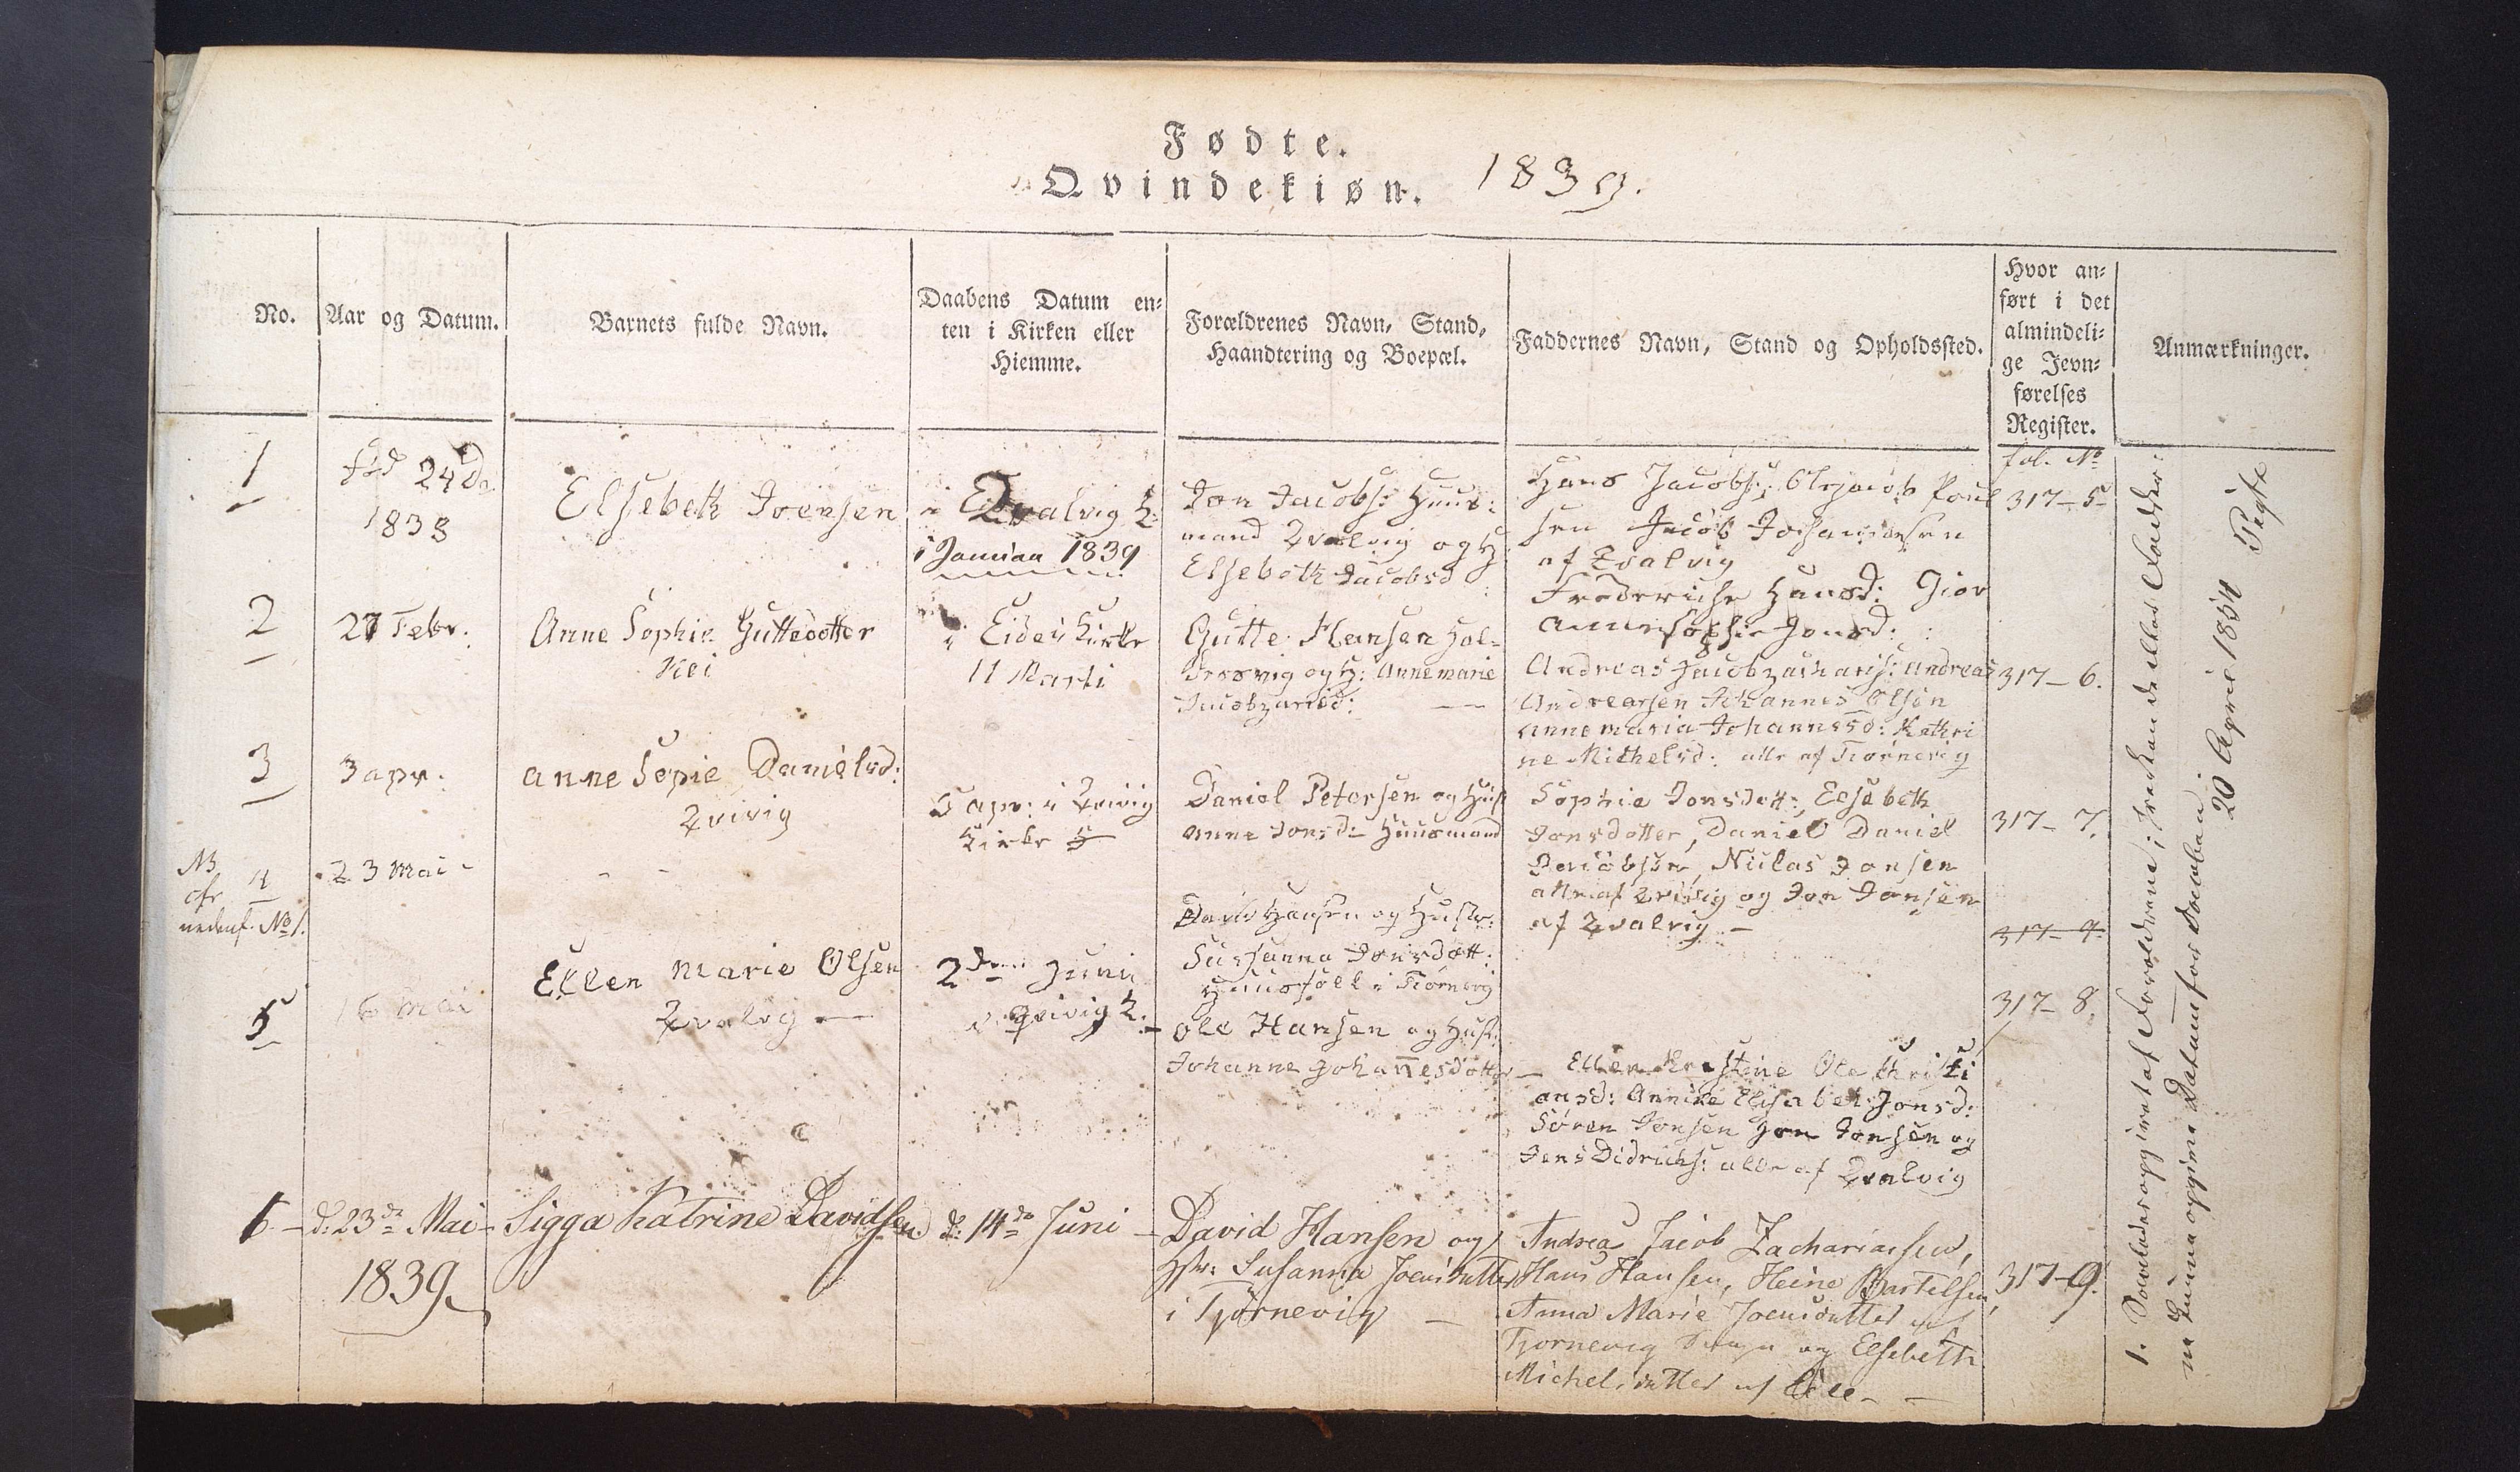 Fødte.
Qvindekiøn. 1839.
No.
Aar og Datum.
Barnets fulde Navn.
Daabens Datum en-
ten i Kirken eller
Hiemme.
Forældrenes Navn, Stand,
Haandtering og Boepæl.
Faddernes Navn, Stand og Opholdssted.
Hvor an-
ført i det
almindeli-
ge Jevn-
førelses
Register.
Anmærkninger.
1
24 De
1838
Elsebeth Joensen
i Qvalvig K:
i Januar 1839
Jon Jacobs: Huus:
mand Qvalvig og H:
Elsebeth Jacobsd
Hans Jacobs: Olejacob Poul
sen Jacob Johannesen
af Qvalvig
Frederiche Hansd: Giov
Annesophie Jonsd:
fol. No
317-5
2
27 Febr.
Anne Sophie Guttesdotter
Kei
i Eides Kirke
11 Marti
Gutte Hansen Hal-
og H: Annemarie
Jacobzarisd:
Andreas Jacobzacharis: Andreas
Andreassen Johannes Olsen
Annemaria Johannesd: Kathri
ne Michelsd: alle af Tiørnevig
317-6.
3
3 apr.
Anne Sopie Danielsd:
Qvivig
5 apr: i Qvivig
Kirke
Daniel Petersen og Hust
Anne Jonsd: Huusmand
Sophie Jonsdott:, Elsebeth
Jonsdotter, Daniel Daniel
Jacobsen, Niclas Jonsen
alle af Qvivig og Jon Jonsen
af Qvalvig -
317-7.
NB
cfr 4
nedenf. No
23 Mai -
David Hansen og Hustr:
Sussanna Jonsdott:
Huusfolk i Tiørnevig
317-9.
5
16 Mai
Ellen Marie Olsen
Qvalvig -
2den Juni
i Qvivig K. -
Ole Hansen og Hust:
Johanne Johannesdotter
- Ellen Krestine Ole Christi
ansd: Annike Elisabet Jonsd:
Sören Jonsen Jon Jonsen og
Jens Didrichs: alle af Qvalvig
317-8.
6. -
d: 23de Mai -
1839
Sigga Katrine Davidsen
d: 14de Juni -
David Hansen og
Hstr: Susanna Joensdatter
i Tjørnevig -
Andreas Jacob Zachariassen,
Hans Hansen, Heine Bertelsen,
Anna Marie Joensdatter af
Tjørnevig og Elsebeth
Michelsdatter af
317-9.
1. Forældrene; Fader:
Datum for Daaben
20 April 1854